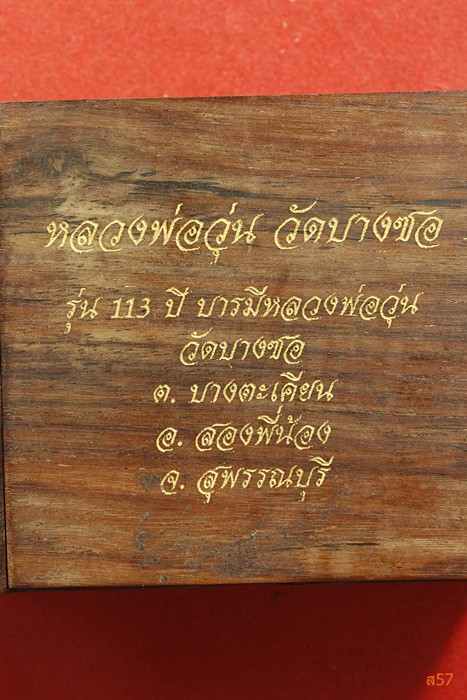 หลวงพ่อวุ่น วัดบางซอ
รุ่น 113 ปี บารมีหลวงพ่อวุ่น
วัดบางซอ
ต. บางตะเคียน
อ. สองพี่น้อง
จ. สุพรรณบุรี
ส57